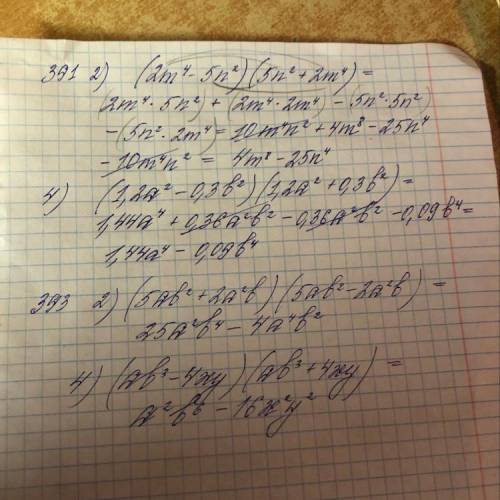 391 2) (2m⁴ - 5n²)(5n² + 2m⁴) =
(2m⁴ · 5n²) + (2m⁴ · 2m⁴) - (5n² · 5n²)
- (5n² · 2m⁴) = 10m⁴n² + 4m⁸ - 25n⁴
- 10m⁴n² = 4m⁸ - 25n⁴
4) (1,2a² - 0,3b²)(1,2a² + 0,3b²) =
1,44a⁴ + 0,36a²b² - 0,36a²b² - 0,09b⁴ =
1,44a⁴ - 0,09b⁴
393 2) (5ab² + 2a²b)(5ab² - 2a²b) =
25a²b⁴ - 4a⁴b²
4) (ab³ - 4xy)(ab³ + 4xy) =
a²b⁶ - 16x²y²